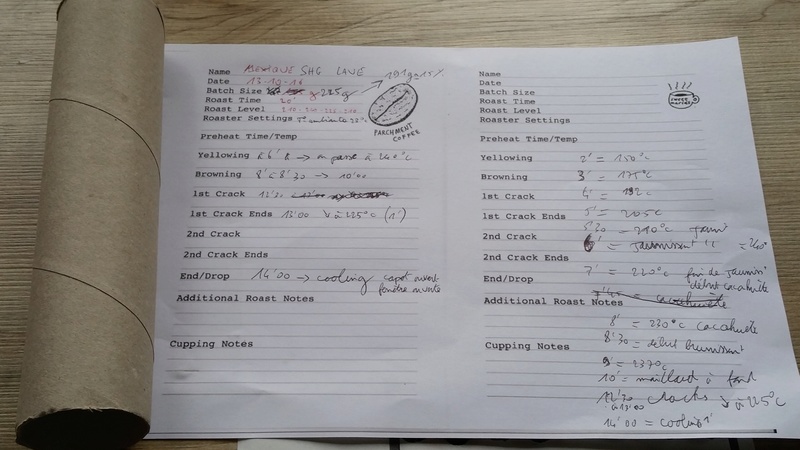 Name MEXIQUE SHG LAVÉ
Date 13-10-16
Batch Size g 225g → 191g = 15%
Roast Time 20'
Roast Level
Roaster Settings T° ambiante 22°c
PARCHMENT COFFEE
Preheat Time/Temp
Yellowing à 6' 8 → on passe à 240°c
Browning 8' à 8'30 → 10'00
1st Crack 12'30
1st Crack Ends 13'00 ↘ à 225°c (1')
2nd Crack
2nd Crack Ends
End/Drop 14'00 → cooling capot ouvert
fenêtre ouverte
Additional Roast Notes
Cupping Notes
Name
Date
Batch Size
Roast Time
Roast Level
Roaster Settings
Preheat Time/Temp
Yellowing 2' = 150°c
Browning 3' = 175°c
1st Crack 4' = 192°c
1st Crack Ends 5' = 205c
5'30 = 210°c
2nd Crack 6' = jaunissent = 240°
2nd Crack Ends
7' = 220°c fin de jaunis
End/Drop début cacahuète
Additional Roast Notes 7'45 = cacahuète
8' = 230°c cacahuète
8'30 = début brunissent
Cupping Notes
9' = 237°c
10' = maillard à fond
12'30 cracks ↘ à 225°c
à 13'00
14'00 = cooling 1'